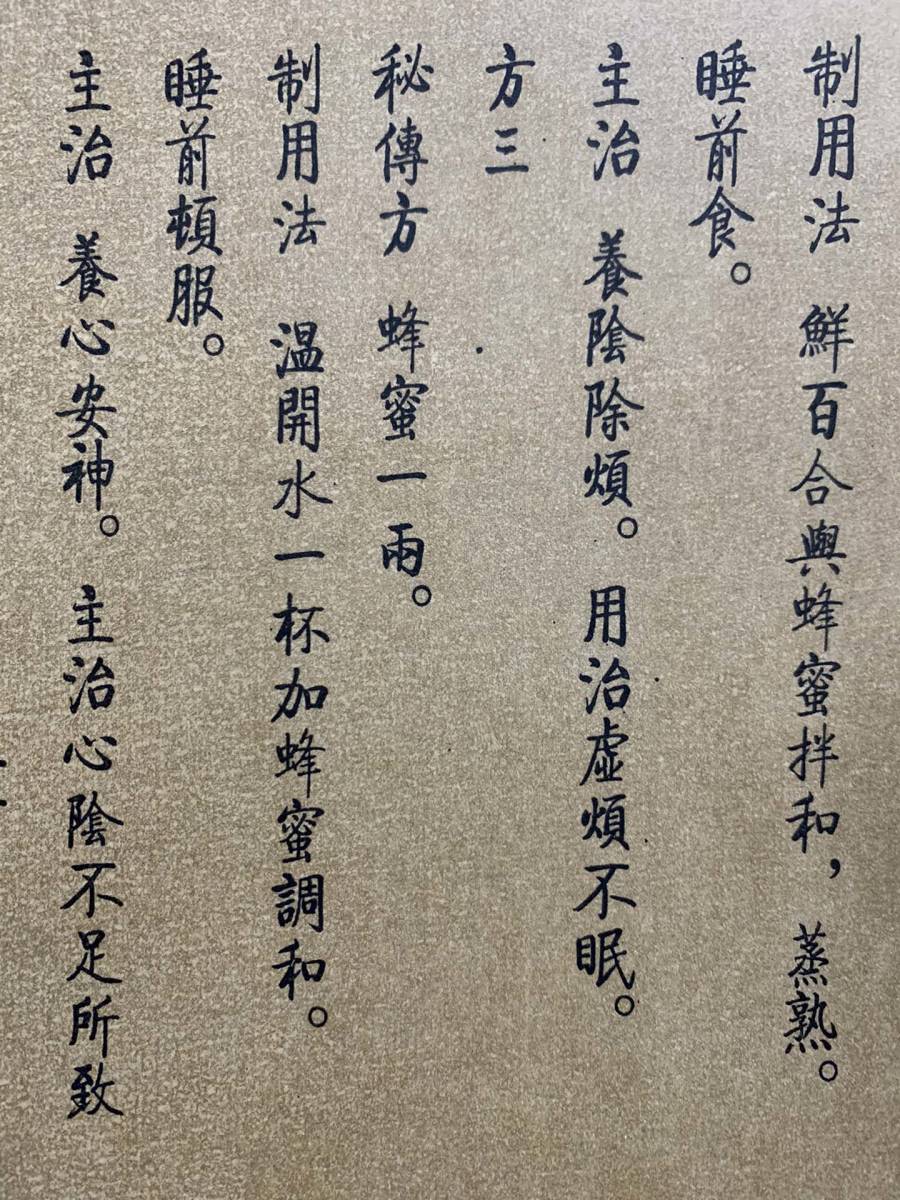 制用法　鮮百合與蜂蜜拌和，蒸熟。
睡前食。
主治　養陰除煩。用治虛煩不眠。
方三
秘傳方　蜂蜜一兩。
制用法　温開水一杯加蜂蜜調和。
睡前頓服。
主治　養心安神。主治心陰不足所致